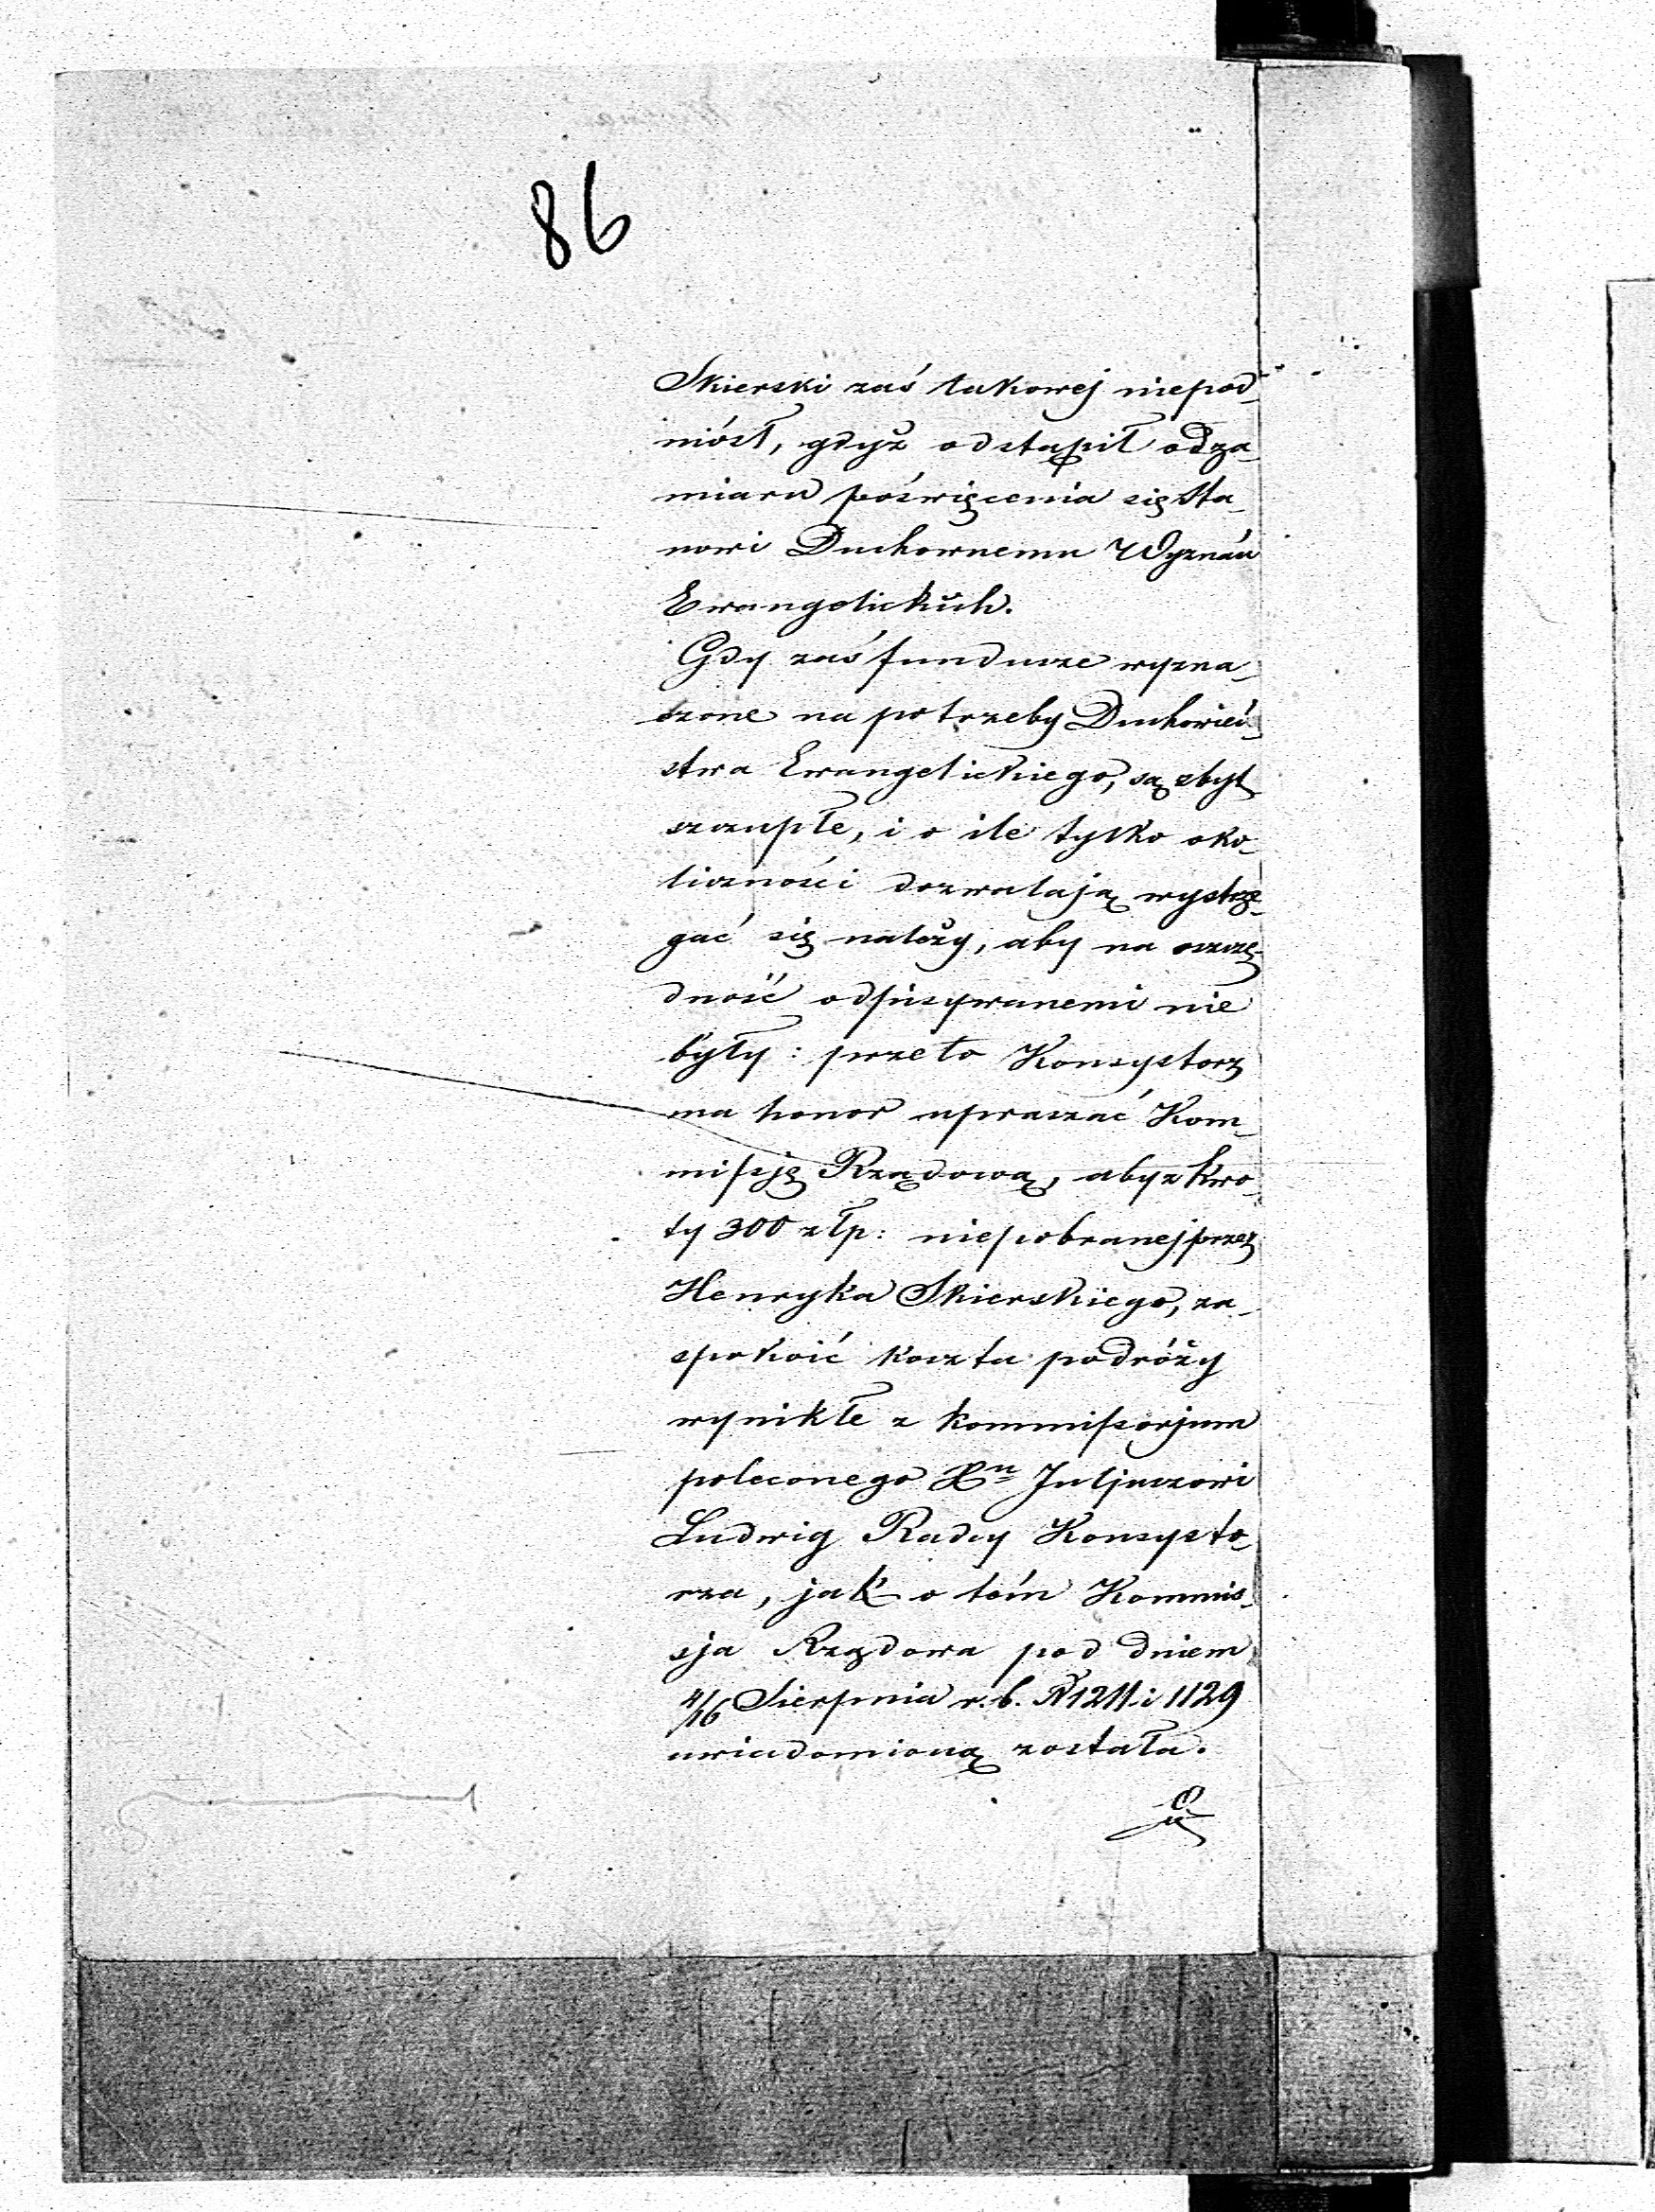 86
Skierski zaś takowej niepod-
niósł, gdyż odstąpił od za-
miaru poświęcenia się Sta-
nowi Duchownemu Wyznań
Ewangelickich.
Gdy zaś fundusze wyzna-
czone na potrzeby Duchowień-
stwa Ewangelickiego, są zbyt
szczupłe, i o ile tylko oko-
liczności dozwalają wystrze-
gać się należy, aby na oszczę-
dność odpisywanemi nie
były: przeto Konsystorz
ma honor upraszać Kom-
missję Rządową, aby z kwo-
ty 300 złp: niepobranej przez
Henryka Skierskiego, za-
spokoić koszta podróży
wynikłe z kommissorjum
poleconego Xu Juljuszowi
Ludwig Radcy Konsysto-
rza, jak o tém Kommis-
sja Rządowa pod dniem
4/16 Sierpnia r. b. N 1211 i 1129
uwiadomioną została.